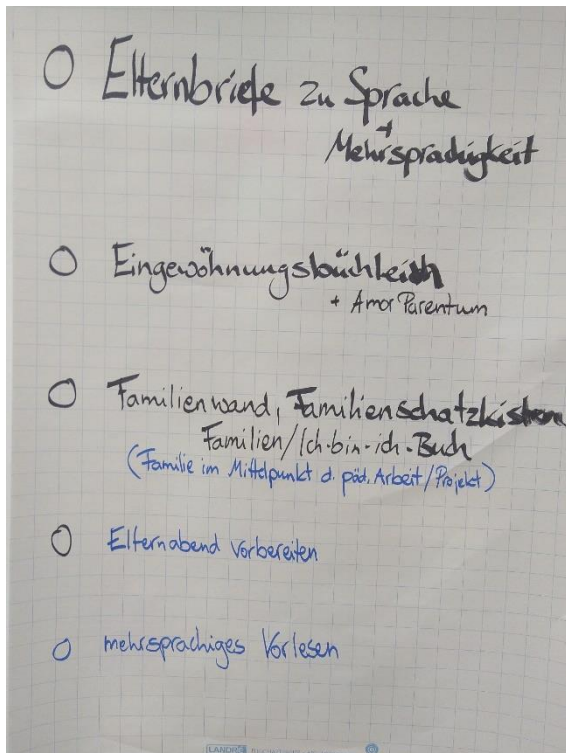 O Elternbriefe zu Sprache
+
Mehrsprachigkeit
O Eingewöhnungsbüchlein
+ Amor Parentum
O Familienwand, Familienschatzkisten
Familien/Ich-bin-ich-Buch
(Familie im Mittelpunkt d. päd. Arbeit/Projekt)
O Elternabend vorbereiten
O mehrsprachiges Vorlesen
LANDRÉ